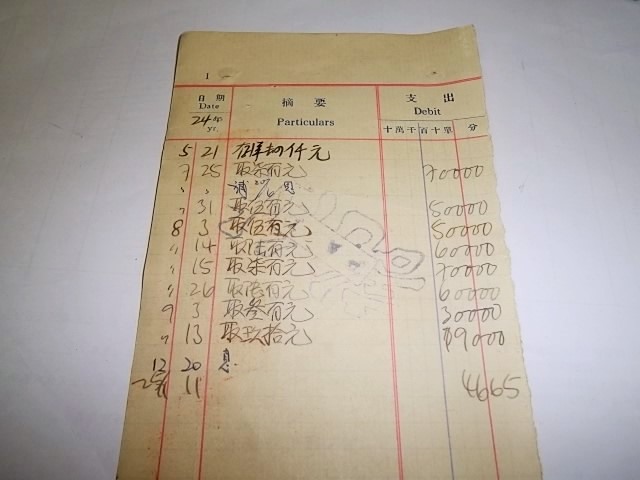 1
日期 摘要 支出
Date Particulars Debit
24年 yr. 十萬千百十單 分
5 21 仟元
7 25 取柒百元 70000
〃 〃 息
〃 31 取伍百元 50000
8 3 取伍百元 50000
〃 14 取陸百元 60000
〃 15 取柒百元 70000
〃 26 取陸百元 60000
9 3 取叁百元 30000
〃 13 取玖拾元 9000
12 20 息
11 4665